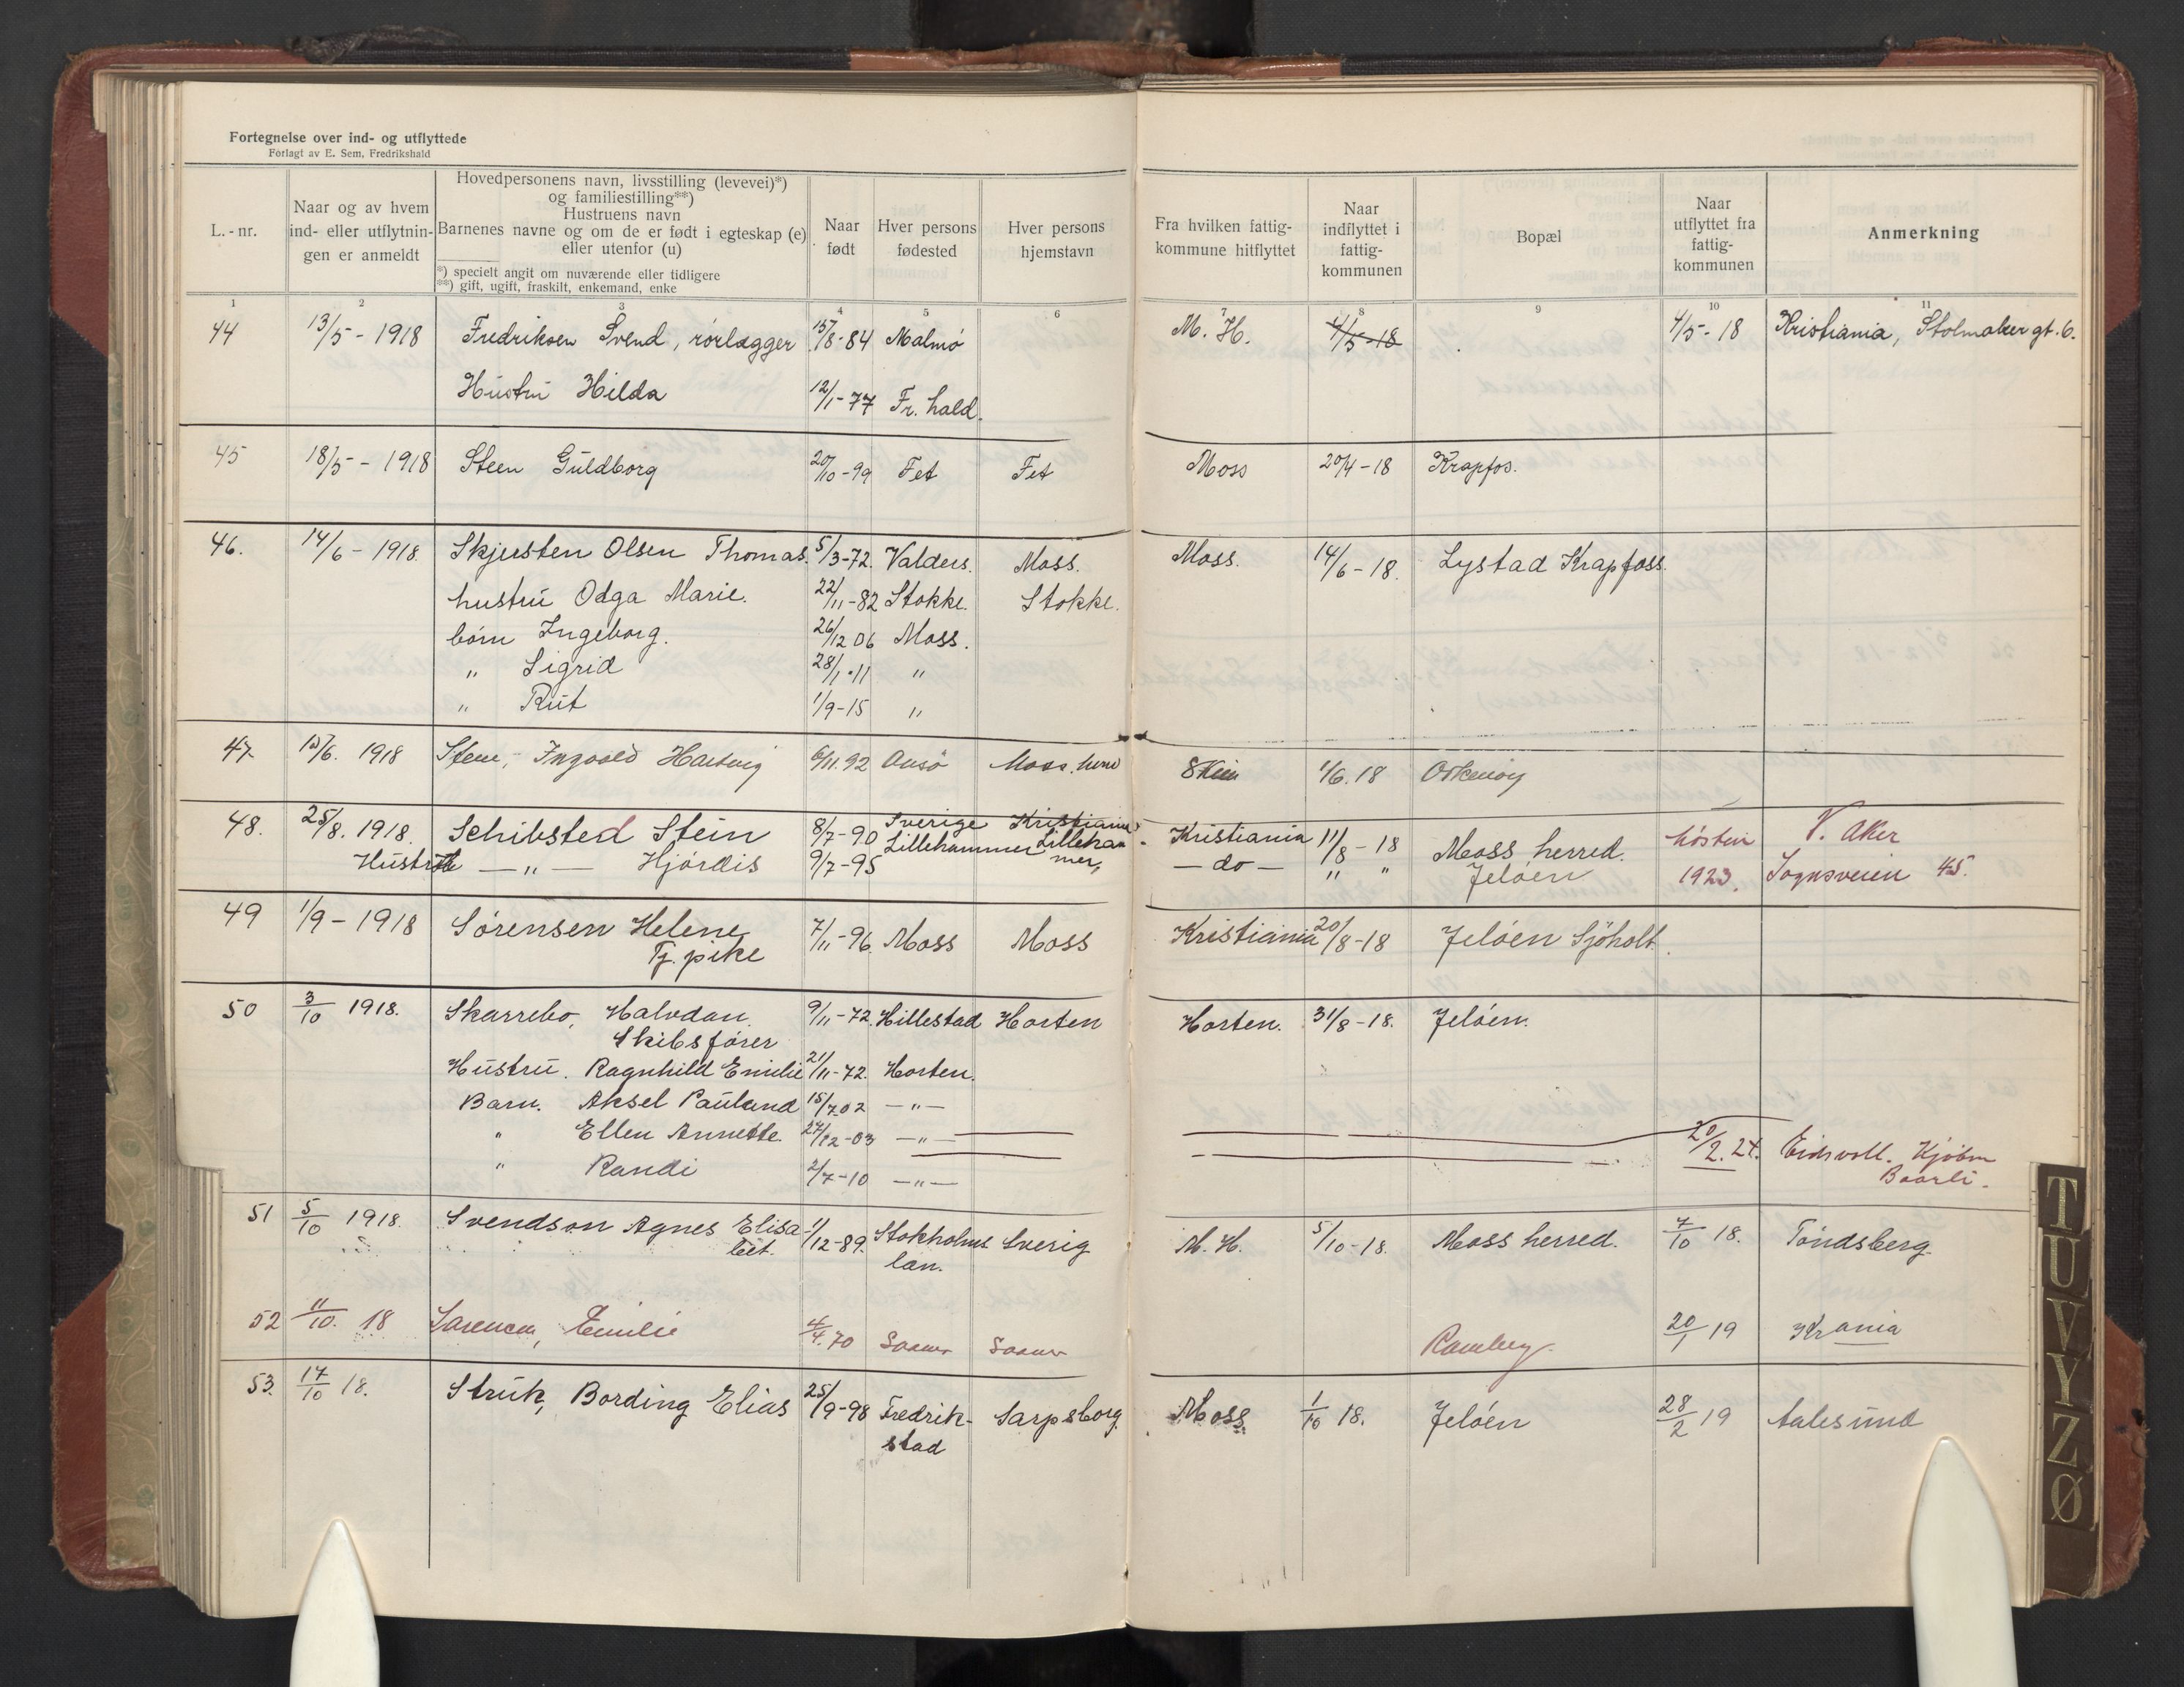 Fortegnelse over ind- og utflyttede
Forlagt av E. Sem, Fredrikshald
L.-nr.
Naar og av hvem
ind- eller utflytnin-
gen er anmeldt
Hovedpersonens navn, livsstilling (levevei)*)
og familiestilling**)
Hustruens navn
Barnenes navne og om de er født i egteskap (e)
eller utenfor (u)
*) specielt angit om nuværende eller tidligere
**) gift, ugift, fraskilt, enkemand, enke
Naar
født
Hver persons
fødested
Hver persons
hjemstavn
Fra hvilken fattig-
kommune hitflyttet
Naar
indflyttet i
fattig-
kommunen
Bopæl
Naar
utflyttet fra
fattig-
kommunen
Anmerkning
1 2 3 4 5 6 7 8 9 10 11
44 13/5 - 1918 Fredriksen Svend, rörlægger 15/8-84 Malmö M. H. 4/5-18 4/5-18 Kristiania, Stolmaker gt. 6.
Hustru Hilda 12/1-77 Fr. hald.
45 18/5 - 1918 Steen Guldborg 20/10-99 Fet Fet Moss 20/4-18 Krapfos.
46. 14/6 - 1918. Skjersten Olsen Thomas. 5/3-72. Valders. Moss. Moss. 14/6-18. Lystad Krapfoss.
hustru Odga Marie. 22/11-82 Stokke. Stokke.
börn Ingeborg. 26/12 06 Moss.
" Sigrid 28/1-11 "
" Rut 1/9-15 "
47. 15/6. 1918 Ingvald Hartvig 6/11.92 Onsö Moss. 1/6.18
48. 25/8. 1918. Schibsted Stein 8/7-90 Sverige Kristiania Kristiania 11/8-18 Moss herred. hösten V. Aker
Hustru —"— Hjördis 9/7-95 Lillehammer Lilleham
mer, —do— " " Jelöen 1923. Sognsveien 45.
49 1/9 - 1918 Sørensen Helene 7/11-96 Moss Moss Kristiania 20/8-18 Jelöen Sjöholt.
Tj. pike
50 3/10 1918. Skarrebo, Halvdan 9/11-72. Hillestad Horten Horten. 31/8-18. Jelöen.
Skibsfører
Hustru. Ragnhild Emilie 21/11-72. Horten.
Barn. Aksel Pauland 15/7 02 —"—
" Ellen Annette. 27/12-03 —"— 20/2. 24. Eidsvoll.
" Randi 2/7-10 —"—
51 5/10 1918. Svendson Agnes Elisa- 1/12-89. Stokholms Sverig M. H. 5/10-18. Moss herred. 7/10 18. Töndsberg.
bet. län.
52 11/10. 18 Emilie 4/4.70 Saaner Saaner Ramberg. 20/1 19 Kr ania
53. 17/10 18. Struk, Bording Elias 25/9-98 Fredrik- Sarpsborg. Moss. 1/10 18. Jelöen 28/2 19 Aalesund
stad
T
U
V
Y
Z
Ø